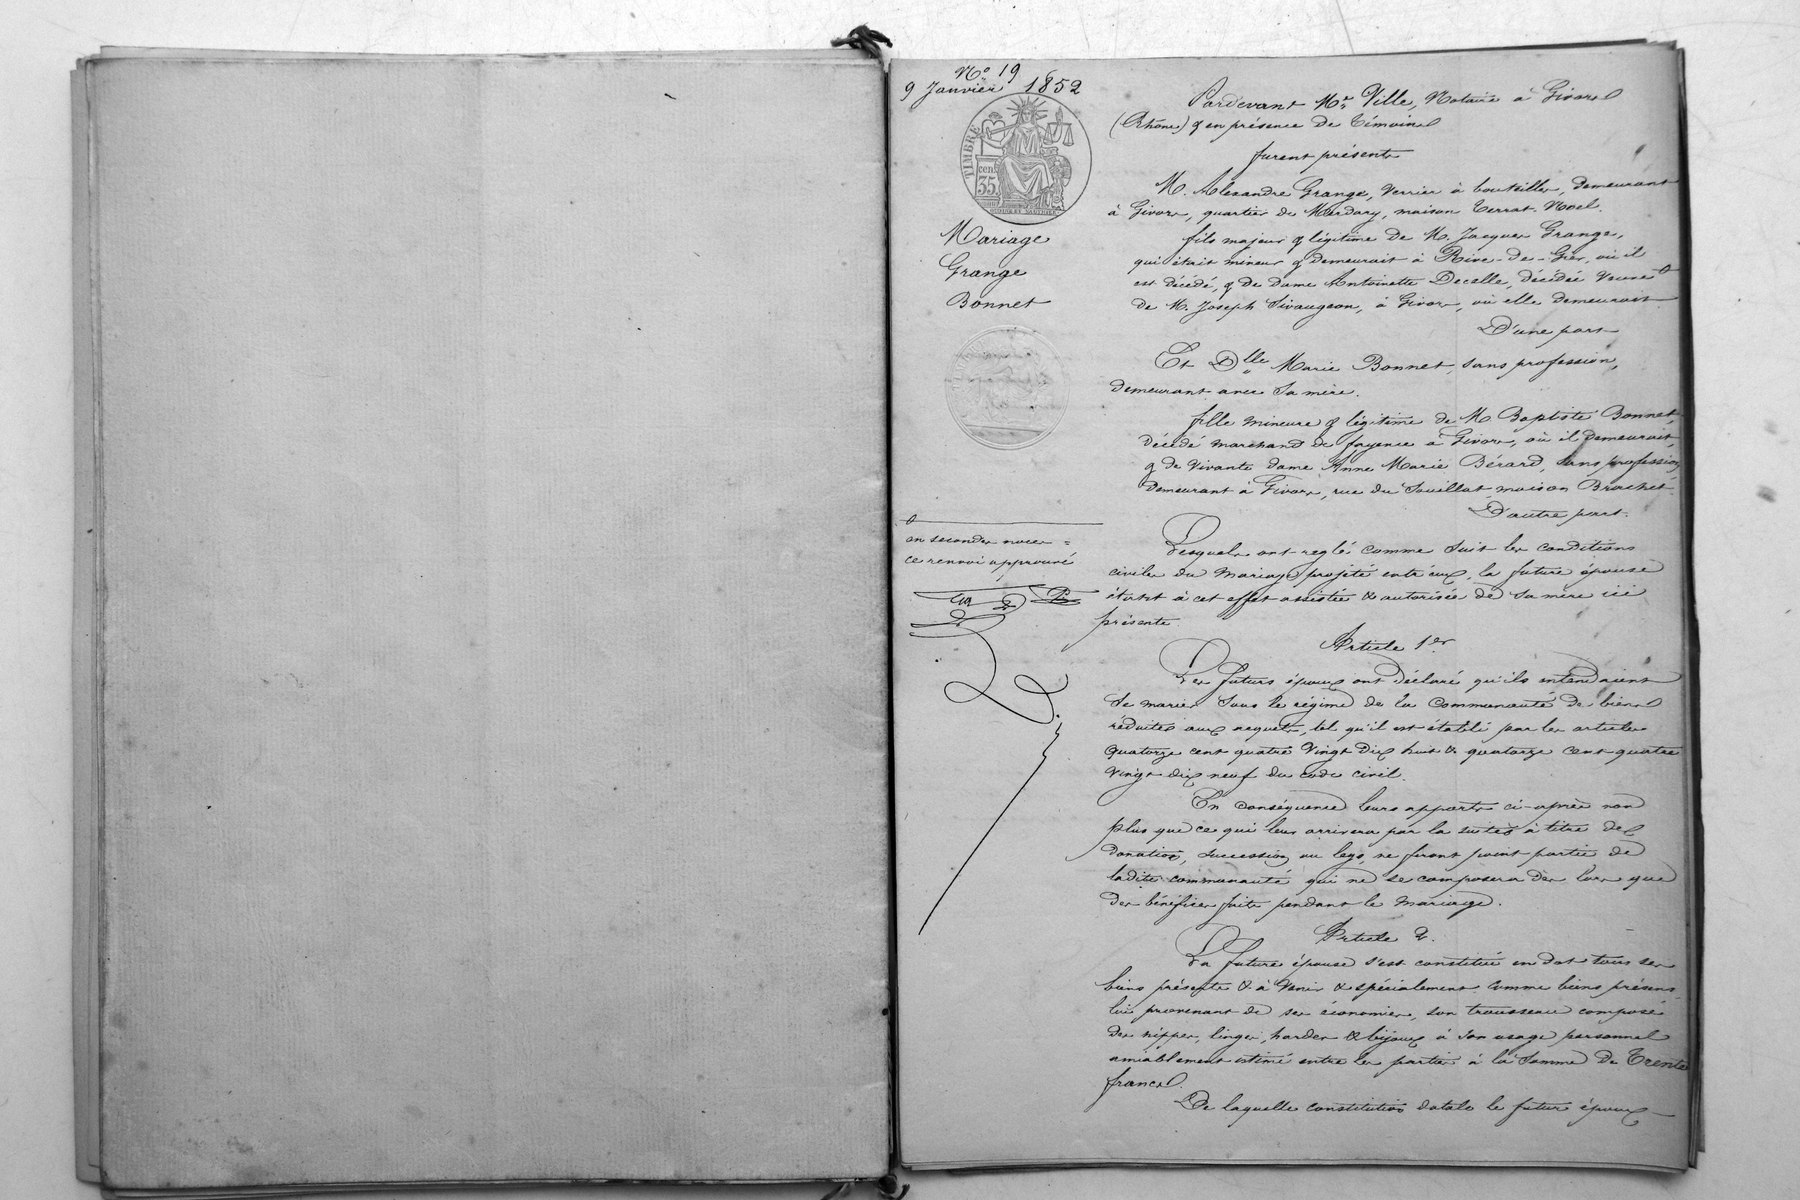 N° 19
9 Janvier 1852
TIMBRE
cen.
35
Mariage
Grange
Bonnet
en secondes noces =
ce renvoi approuvé
Pardevant Me Ville, Notaire à Givors
(Rhône) & en présence de témoins
furent présents
M. Alexandre Grange, verrier à bouteilles, demeurant
à Givors, quartier de Merdary, maison Terrat-Noel.
fils majeur & légitime de M. Jacques Grange,
qui était mineur & demeurait à Rive-de-Gier, où il
est décédé, & de Dame Antoinette Decelle, décédée veuve
de M. Joseph Sivaugeon, à Givors, où elle demeurait
D'une part
Et Dlle Marie Bonnet, sans profession,
demeurant avec sa mère.
fille mineure & légitime de M. Baptiste Bonnet,
décédé marchand de fayence à Givors, où il demeurait,
& de vivante dame Anne Marie Bérard, sans profession,
demeurant à Givors, rue du Souillat, maison Brachet.
D'autre part.
Lesquels ont reglé comme suit les conditions
civiles du mariage projeté entr'eux, la future épouse
étant à cet effet assistée & autorisée de sa mère ici
présente.
Article 1er
Les futurs époux ont déclaré qu'ils entendaient
se marier sous le régime de la communauté de biens
réduite aux acquets, tel qu'il est établi par les articles
quatorze cent quatre vingt dix huit & quatorze cent quatre
vingt dix neuf du code civil.
En conséquence leurs apports ci-après non
plus que ce qui leur arrivera par la suite à titre de
donation, succession ou legs, ne feront point partie de
ladite communauté qui ne se composera dès lors que
des bénéfices faits pendant le mariage.
Article 2.
La future épouse s'est constitué en dot tous ses
biens présents & à venir & spécialement comme biens présens
lui provenant de ses économies, son trousseau composé
des nippes, linges, hardes & bijoux à son usage personnel
amiablement estimé entre les parties à la somme de Trente
francs.
De laquelle constitution dotale le futur époux